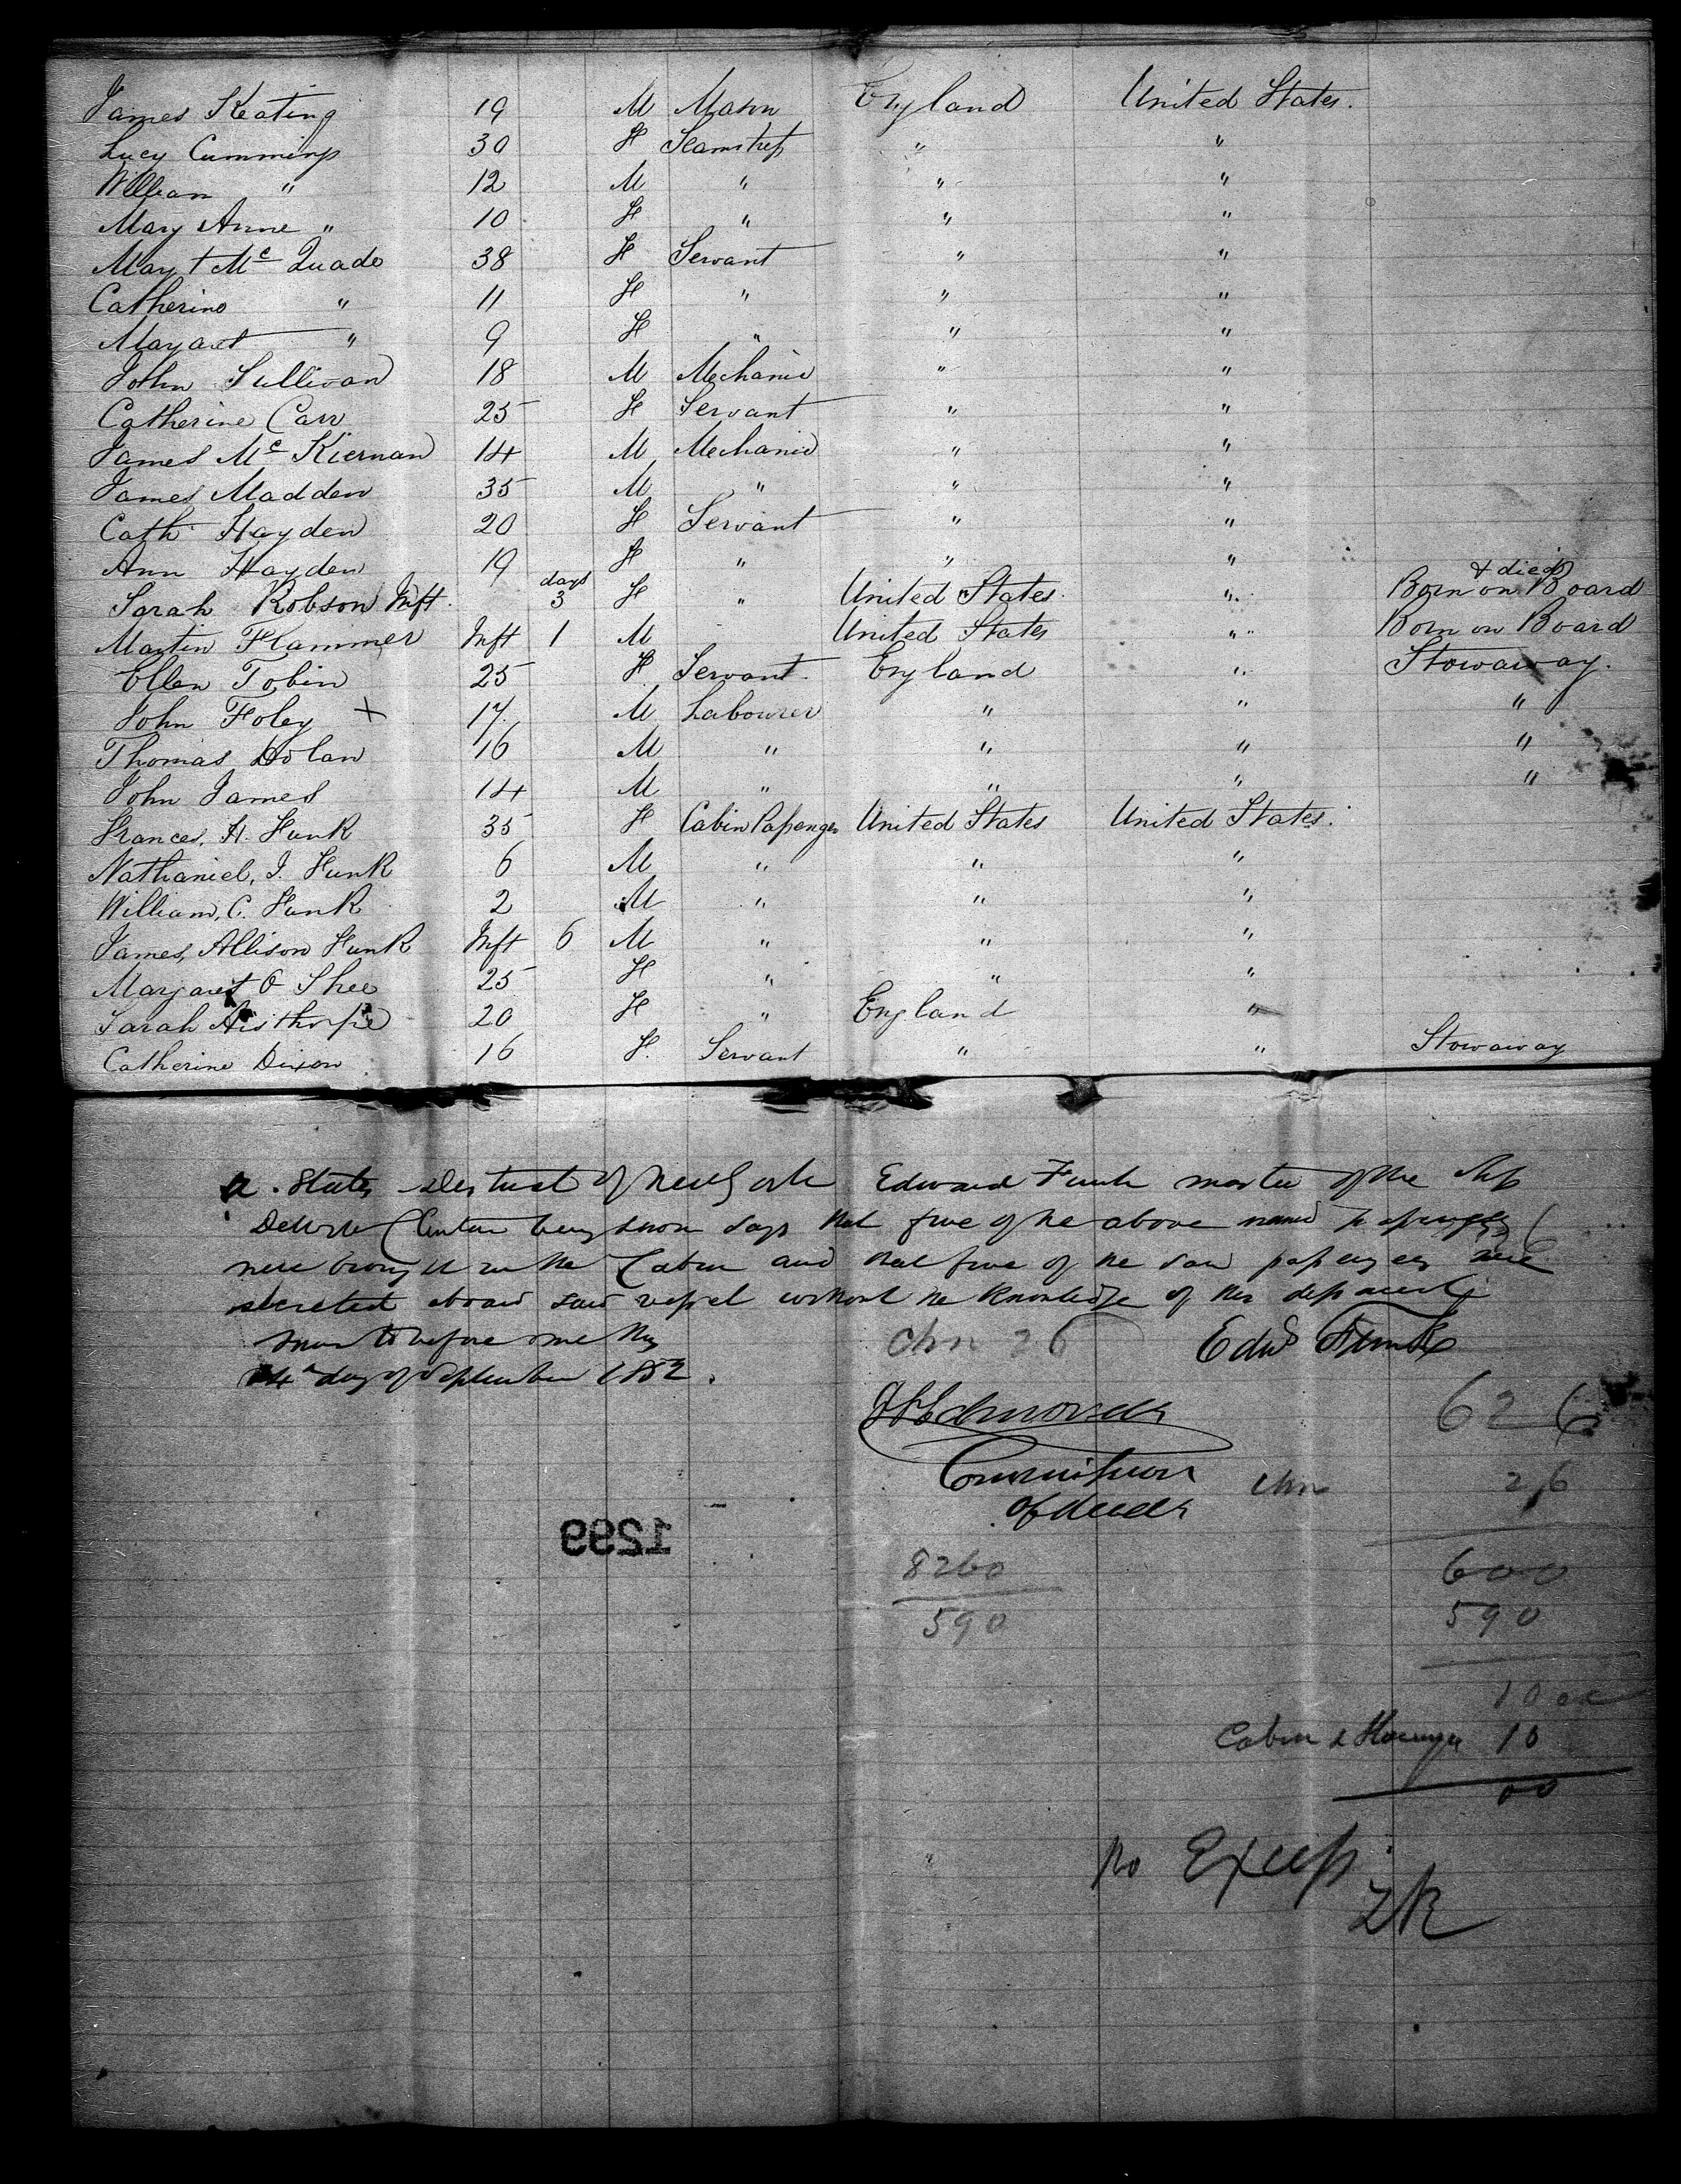 James Keating 19 M Mason England United States.
Lucy Cummings 30 F Seamstress " "
William " 12 M " " "
Mary Anne " 10 F " " "
Mary + Mc Quade 38 F Servant " "
Catherine " 11 F " " "
Margaret " 9 F " " "
John Sullivan 18 M Mechanic " "
Catherine Carr 25 F Servant " "
James Mc Kiernan 14 M Mechanic " "
James Madden 35 M " " "
Cath Hayden 20 F Servant " "
Ann Hayden 19 F " " "
Sarah Robson Inft. 3 days F " United States " Born & died on Board
Martin Hammer Inft 1 M United States " Born on Board
Ellen Tobin 25 F Servant. England " Stowaway.
John Foley + 17 M Labourer " " "
Thomas Dolan 16 M " " " "
John James 14 M " " " "
Frances, H. Funk 35 F Cabin Passenger United States United States.
Nathaniel, J. Funk 6 M " " "
William, C. Funk 2 M " " "
James, Allison Funk Inft 6 M " " "
Margaret O Shee 25 F " " "
Sarah Aisthorpe 20 F " England "
Catherine Dixon 16 F. Servant " " Stowaway
States District of New York Edward Funk master of the Ship
DeWitt Clinton being sworn says that five of the above named passengers 6
were brought in the Cabin and that five of the said passengers were
secreted aboard said vessel without the knowledge of this deponent
Sworn to before me this chn 26 Edwd Funk
4th day of September 1852.
J S Edmonds 626
Commissioner chn 26
of deeds
1299
8260 600
590 590
10 ex
Cabin & Stowaya 10
00
No Excess